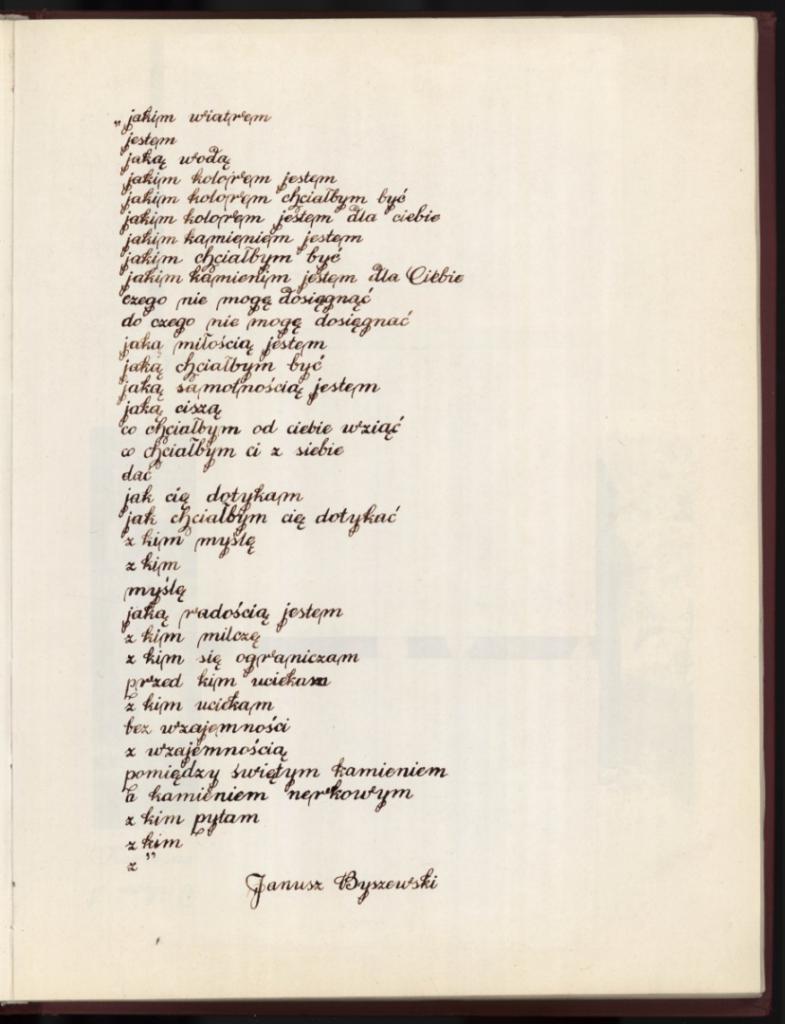 „jakim wiatrem
jestem
jaką wodą
jakim kolorem jestem
jakim kolorem chciałbym być
jakim kolorem jestem dla ciebie
jakim kamieniem jestem
jakim chciałbym być
jakim kamienim jestem dla Ciebie
czego nie mogę dosięgnąć
do czego nie mogę dosięgnać
jaką miłością jestem
jaką chciałbym być
jaką samotnością jestem
jaką ciszą
co chciałbym od ciebie wziąć
co chciałbym ci z siebie
dać
jak cię dotykam
jak chciałbym cię dotykać
z kim myślę
z kim
myślę
jaką radością jestem
z kim milczę
z kim się ograniczam
przed kim uciekam
z kim uciekam
bez wzajemności
z wzajemnością
pomiędzy świętym kamieniem
a kamieniem nerkowym
z kim pytam
z kim
z”
Janusz Byszewski